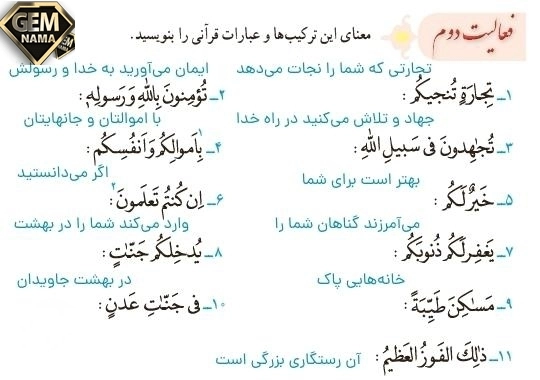 GEM
NAMA
فعالیت دوم
معنای این ترکیب‌ها و عبارات قرآنی را بنویسید.
تجارتی که شما را نجات می‌دهد
ایمان می‌آورید به خدا و رسولش
۱ــ تِجارَةٍ تُنجیکُم :
۲ــ تُؤمِنونَ بِاللّٰهِ وَ رَسولِهٖ :
جهاد و تلاش می‌کنید در راه خدا
با اموالتان و جانهایتان
۳ــ تُجٰهِدونَ فی سَبیلِ اللّٰهِ :
۴ــ بِاَموالِکُم وَ اَنفُسِکُم۱ :
بهتر است برای شما
اگر می‌دانستید
۵ــ خَیرٌ لَکُم :
۶ــ اِن کُنتُم تَعلَمونَ۲ :
می‌آمرزند گناهان شما را
وارد می‌کند شما را در بهشت
۷ــ یَغفِر لَکُم ذُنوبَکُم :
۸ــ یُدخِلکُم جَنّٰتٍ :
خانه‌هایی پاک
در بهشت جاویدان
۹ــ مَسٰکِنَ طَیِّبَةً :
۱۰ــ فی جَنّٰتِ عَدنٍ :
۱۱ــ ذٰلِکَ الفَوزُ العَظیمُ :
آن رستگاری بزرگی است